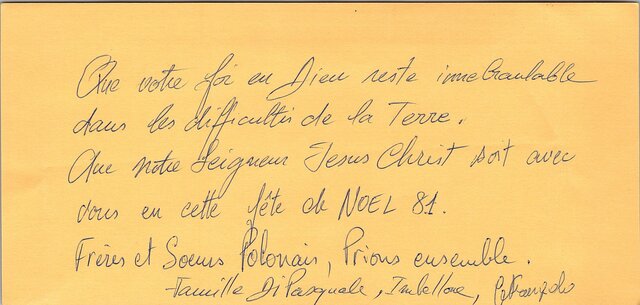 Que votre foi en Dieu reste innebranlable
dans les difficultés de la Terre.
Que notre Seigneur Jesus Christ soit avec
vous en cette fête de NOEL 81.
Frères et Soeurs Polonais, Prions ensemble.
Famille Di Pasquale,